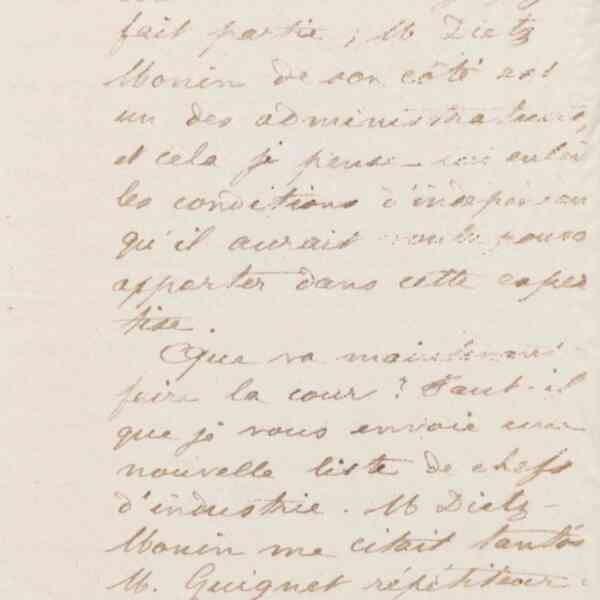 fait partie ; M Dietz
Monin de son côté est
un des administrateurs,
et cela je pense lui enlève
les conditions d'indépendan
qu'il aurait voulu pouvo
apporter dans cette exper
tise.
Que va maintenant
faire la cour ? Faut-il
que je vous envoie une
nouvelle liste de chefs
d'industrie. M Dietz-
Monin me citait tantôt
M. Guignet répétiteur